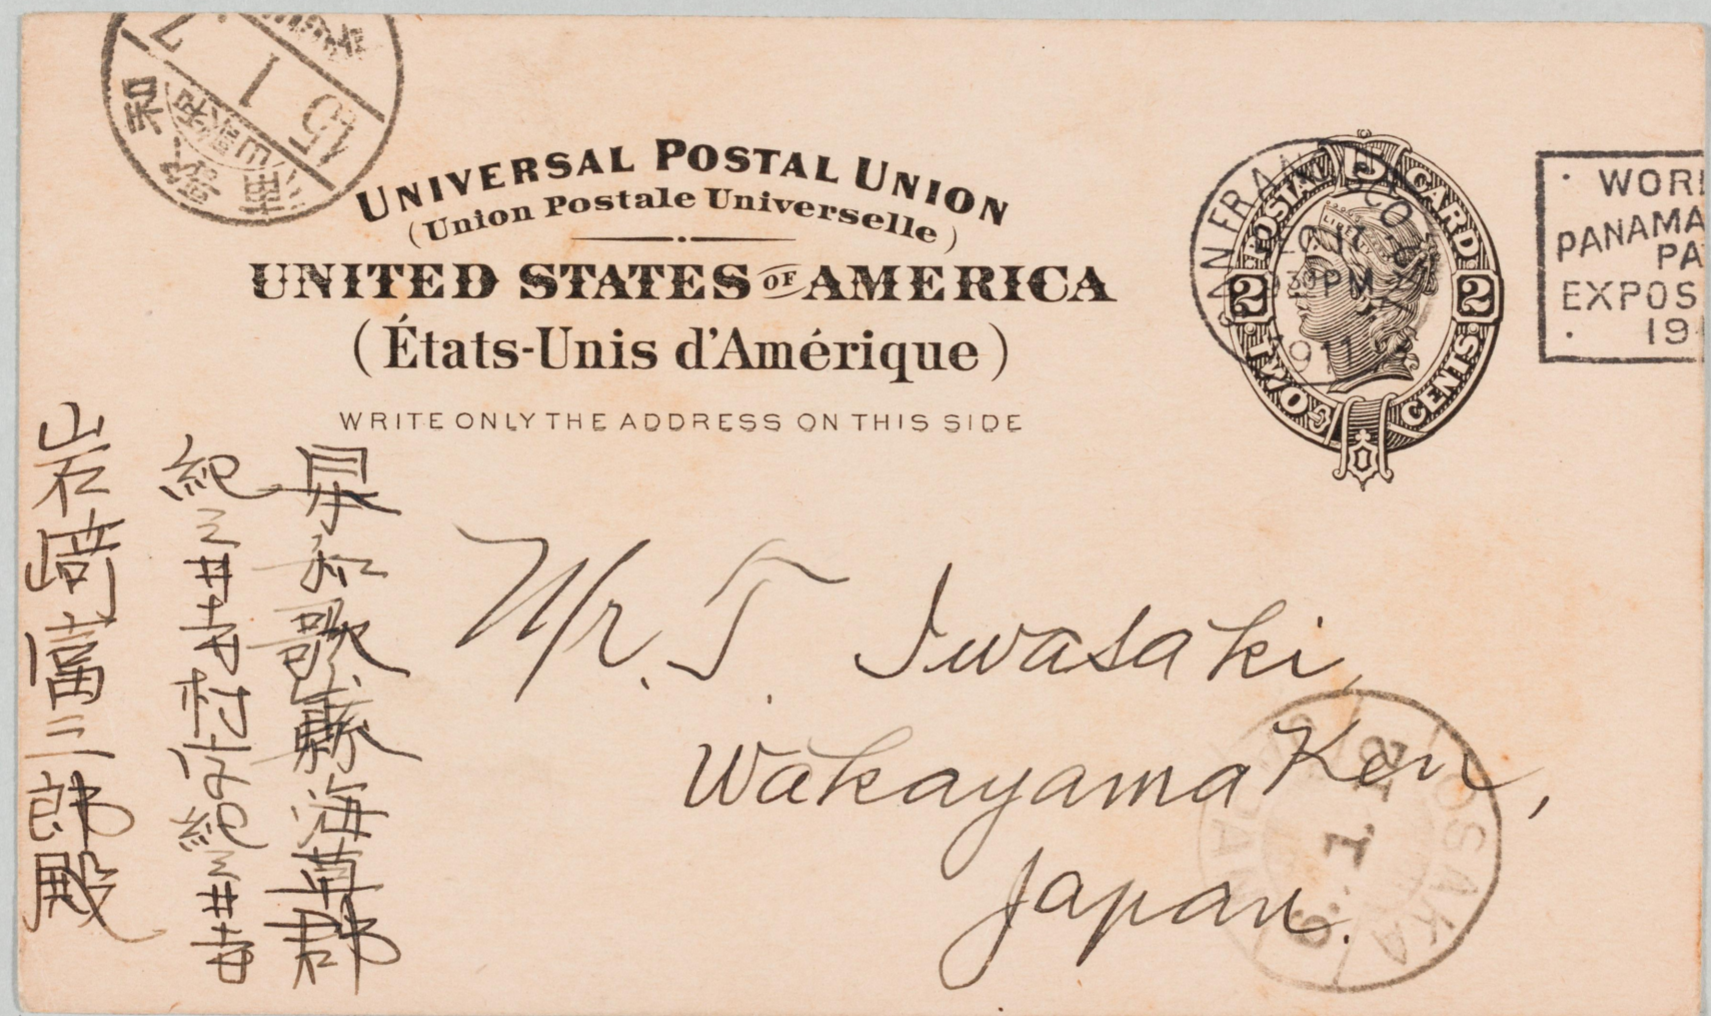 UNIVERSAL POSTAL UNION
(Union Postale Universelle)
UNITED STATES OF AMERICA
(États-Unis d'Amérique)
WRITE ONLY THE ADDRESS ON THIS SIDE
POSTAL CARD
2 2
TWO CENTS
SAN FRANCISCO
30 PM
1911
WORL
PANAMA
PA
EXPOS
191
45
1
7
和歌
Mr. T. Iwasaki,
Wakayama Ken,
Japan.
OSAKA
6.1.12
JAPAN
和歌山縣海草郡
紀三井寺村紀三井寺
岩崎富三郎殿